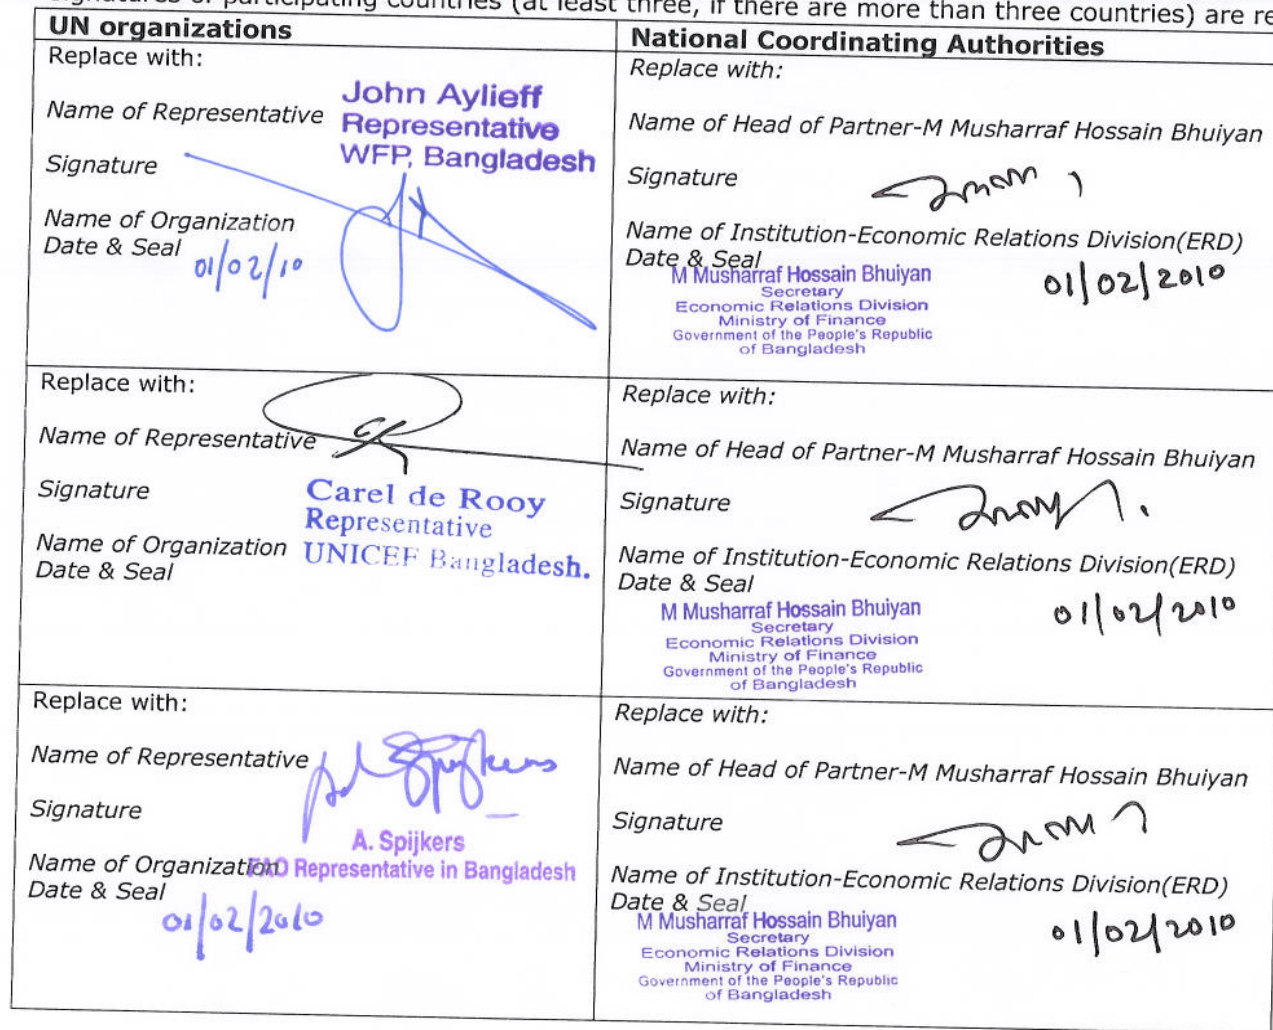 signatures of participating countries (at least three, if there are more than three countries) are re
UN organizations
Replace with:
Name of Representative
John Aylieff
Representative
WFP, Bangladesh
Signature
Name of Organization
Date & Seal
01/02/10
National Coordinating Authorities
Replace with:
Name of Head of Partner-M Musharraf Hossain Bhuiyan
Signature
Name of Institution-Economic Relations Division(ERD)
Date & Seal
M Musharraf Hossain Bhuiyan
Secretary
Economic Relations Division
Ministry of Finance
Government of the People's Republic
of Bangladesh
01/02/2010
Replace with:
Name of Representative
Signature
Carel de Rooy
Representative
UNICEF Bangladesh.
Name of Organization
Date & Seal
Replace with:
Name of Head of Partner-M Musharraf Hossain Bhuiyan
Signature
Name of Institution-Economic Relations Division(ERD)
Date & Seal
M Musharraf Hossain Bhuiyan
Secretary
Economic Relations Division
Ministry of Finance
Government of the People's Republic
of Bangladesh
01/02/2010
Replace with:
Name of Representative
Spijkers
Signature
A. Spijkers
FAO Representative in Bangladesh
Name of Organization
Date & Seal
01/02/2010
Replace with:
Name of Head of Partner-M Musharraf Hossain Bhuiyan
Signature
Name of Institution-Economic Relations Division(ERD)
Date & Seal
M Musharraf Hossain Bhuiyan
Secretary
Economic Relations Division
Ministry of Finance
Government of the People's Republic
of Bangladesh
01/02/2010